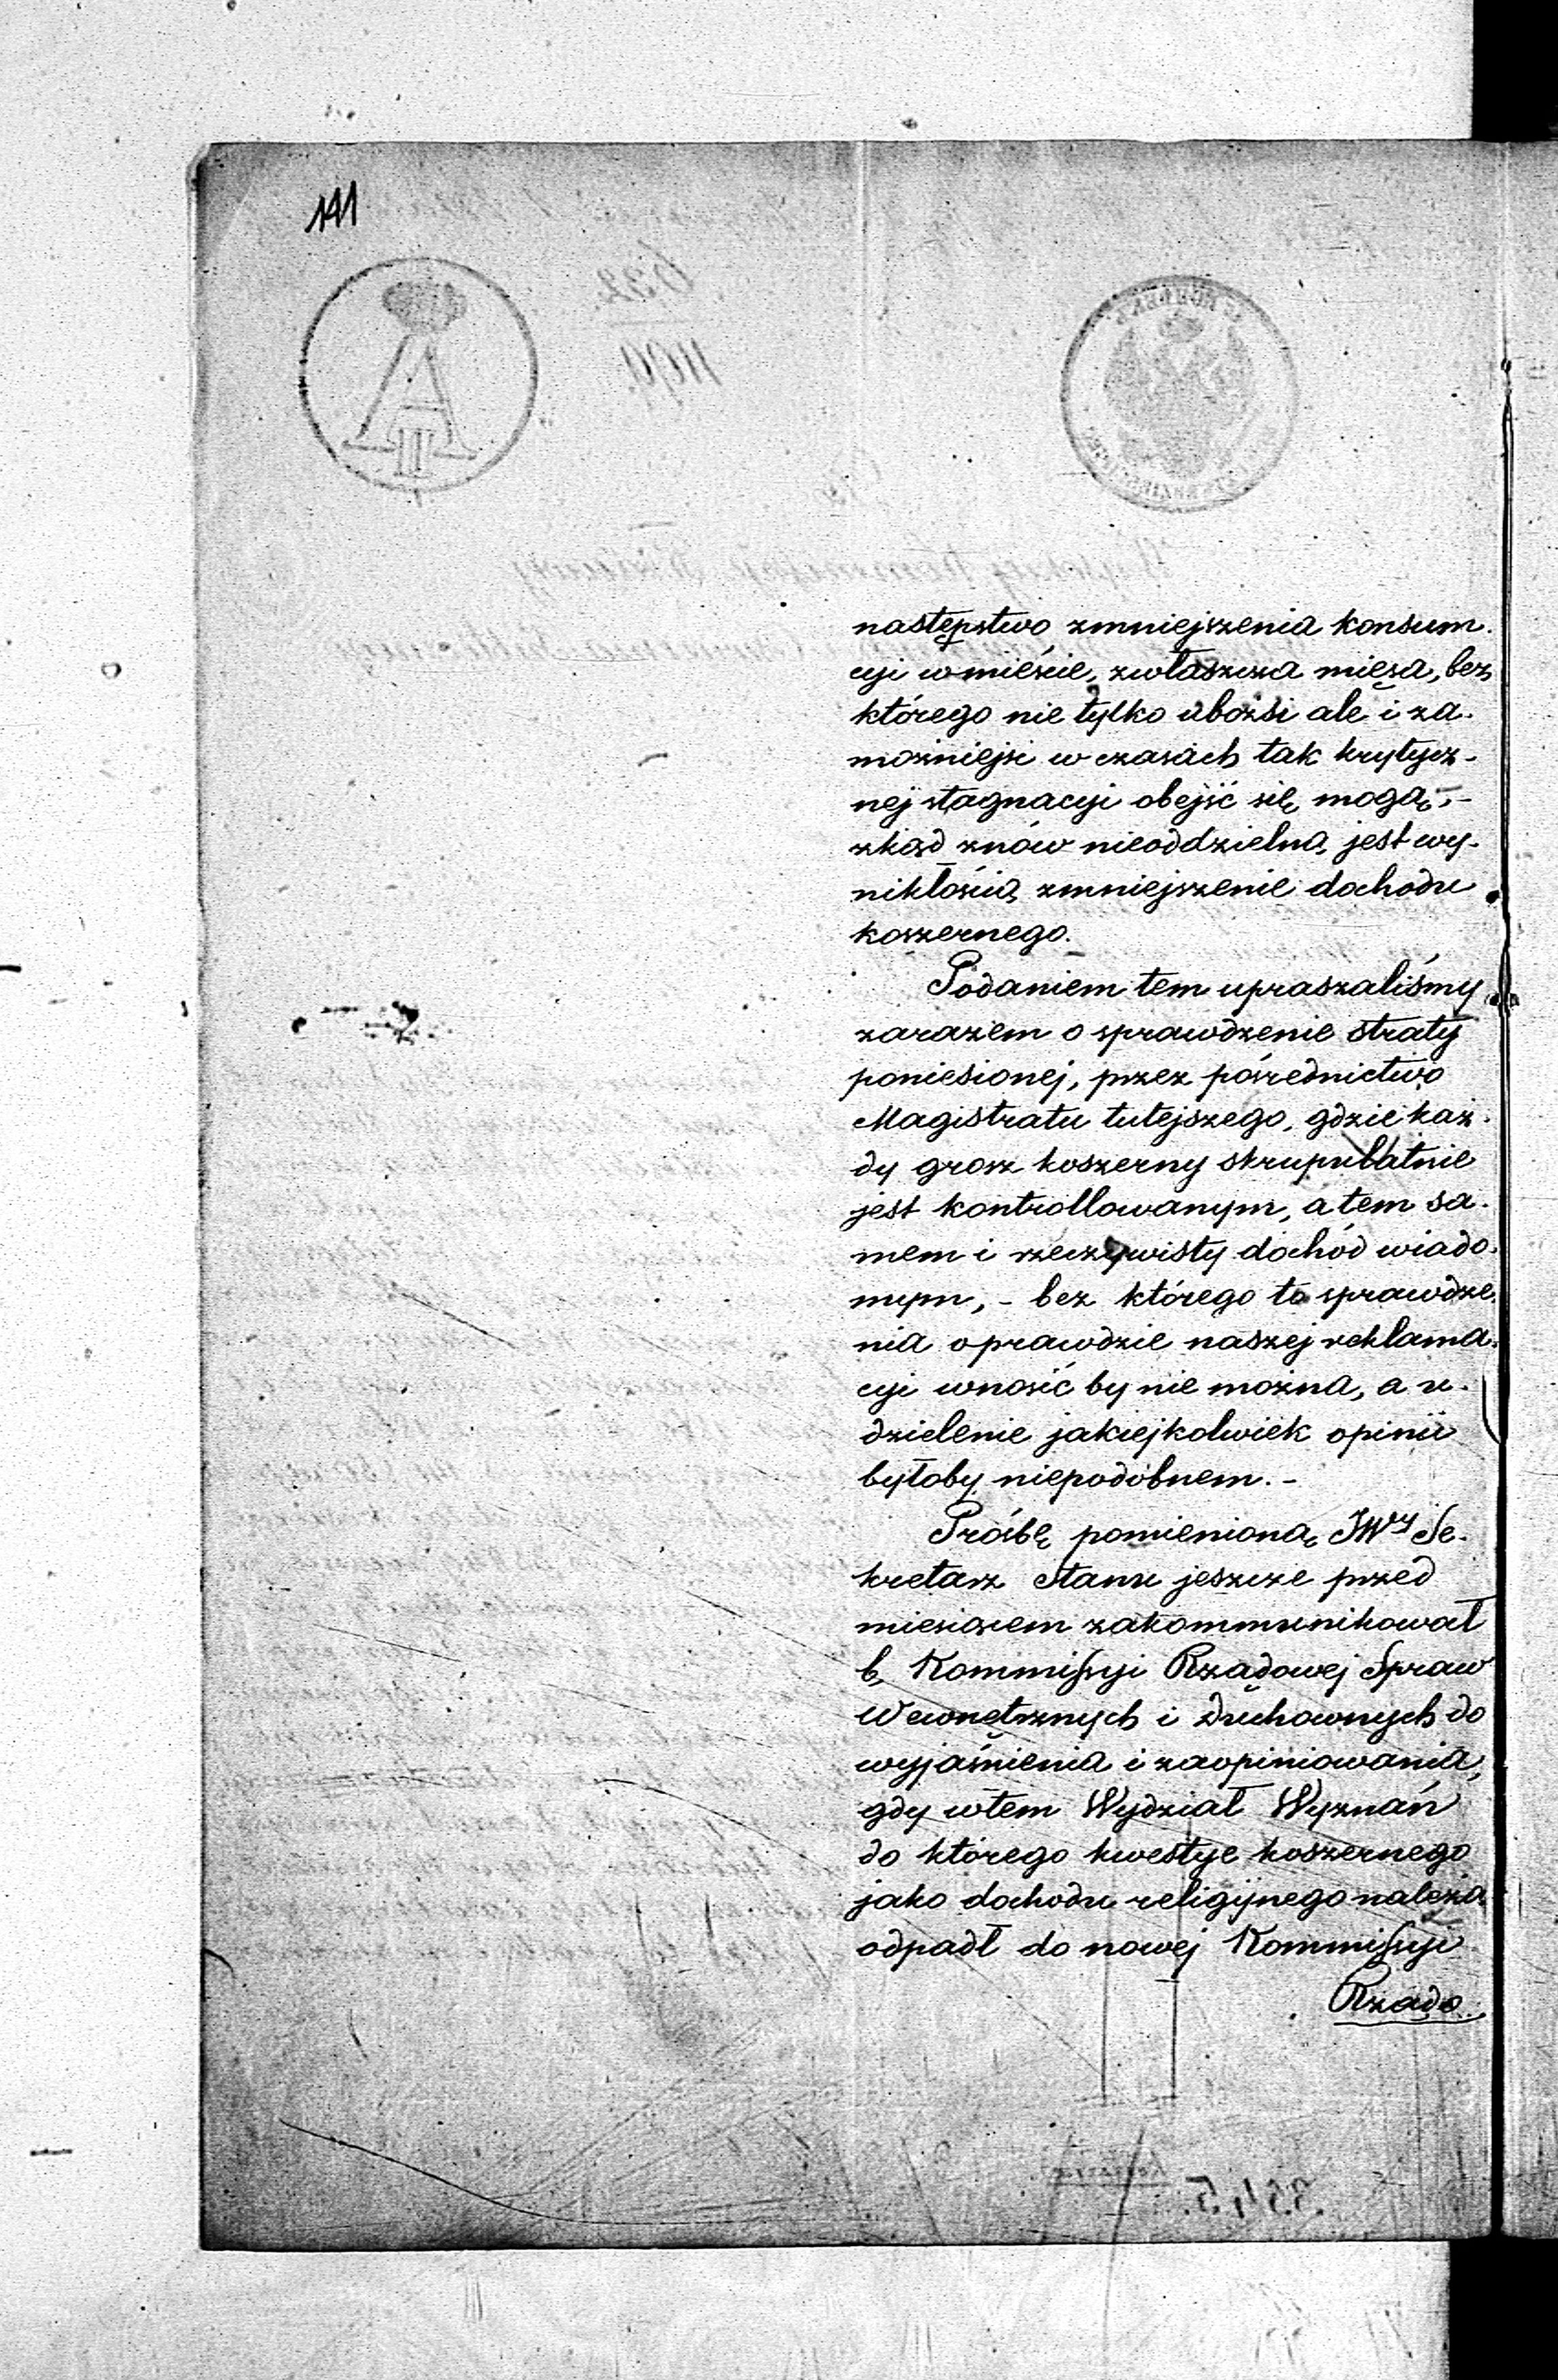 141
następstwo zmniejszenia konsum.
cyi w mieście, zwłaszcza mięsa, bez
którego nie tylko ubożsi ale i za.
możniejsi w czasach tak krytycz-
nej stagnacyi obejść się mogą, -
zkąd znów nieoddzielną jest wy-
nikłością zmniejszenie dochodu
koszernego.
Podaniem tem upraszaliśmy
zarazem o sprawdzenie straty
poniesionej, przez pośrednictwo
Magistratu tutejszego, gdzie każ.
dy grosz koszerny skrupulatnie
jest kontrollowanym, a tem sa.
mem i rzeczywisty dochód wiado.
mym, - bez którego to sprawdze.
nia o prawdzie naszej reklama.
cyi wnosić by nie można, a u.
dzielenie jakiejkolwiek opinii
byłoby niepodobnem. -
Prośbę pomienioną JWy Se.
kretarz Stanu jeszcze przed
miesiącem zakommunikował
b. Kommissyi Rządowej Spraw
Wewnętrznych i Duchownych do
wyjaśnienia i zaopiniowania,
gdy wtem Wydział Wyznań
do którego kwestye koszernego
jako dochodu religijnego należą
odpadł do nowej Kommissyi
Rządo.